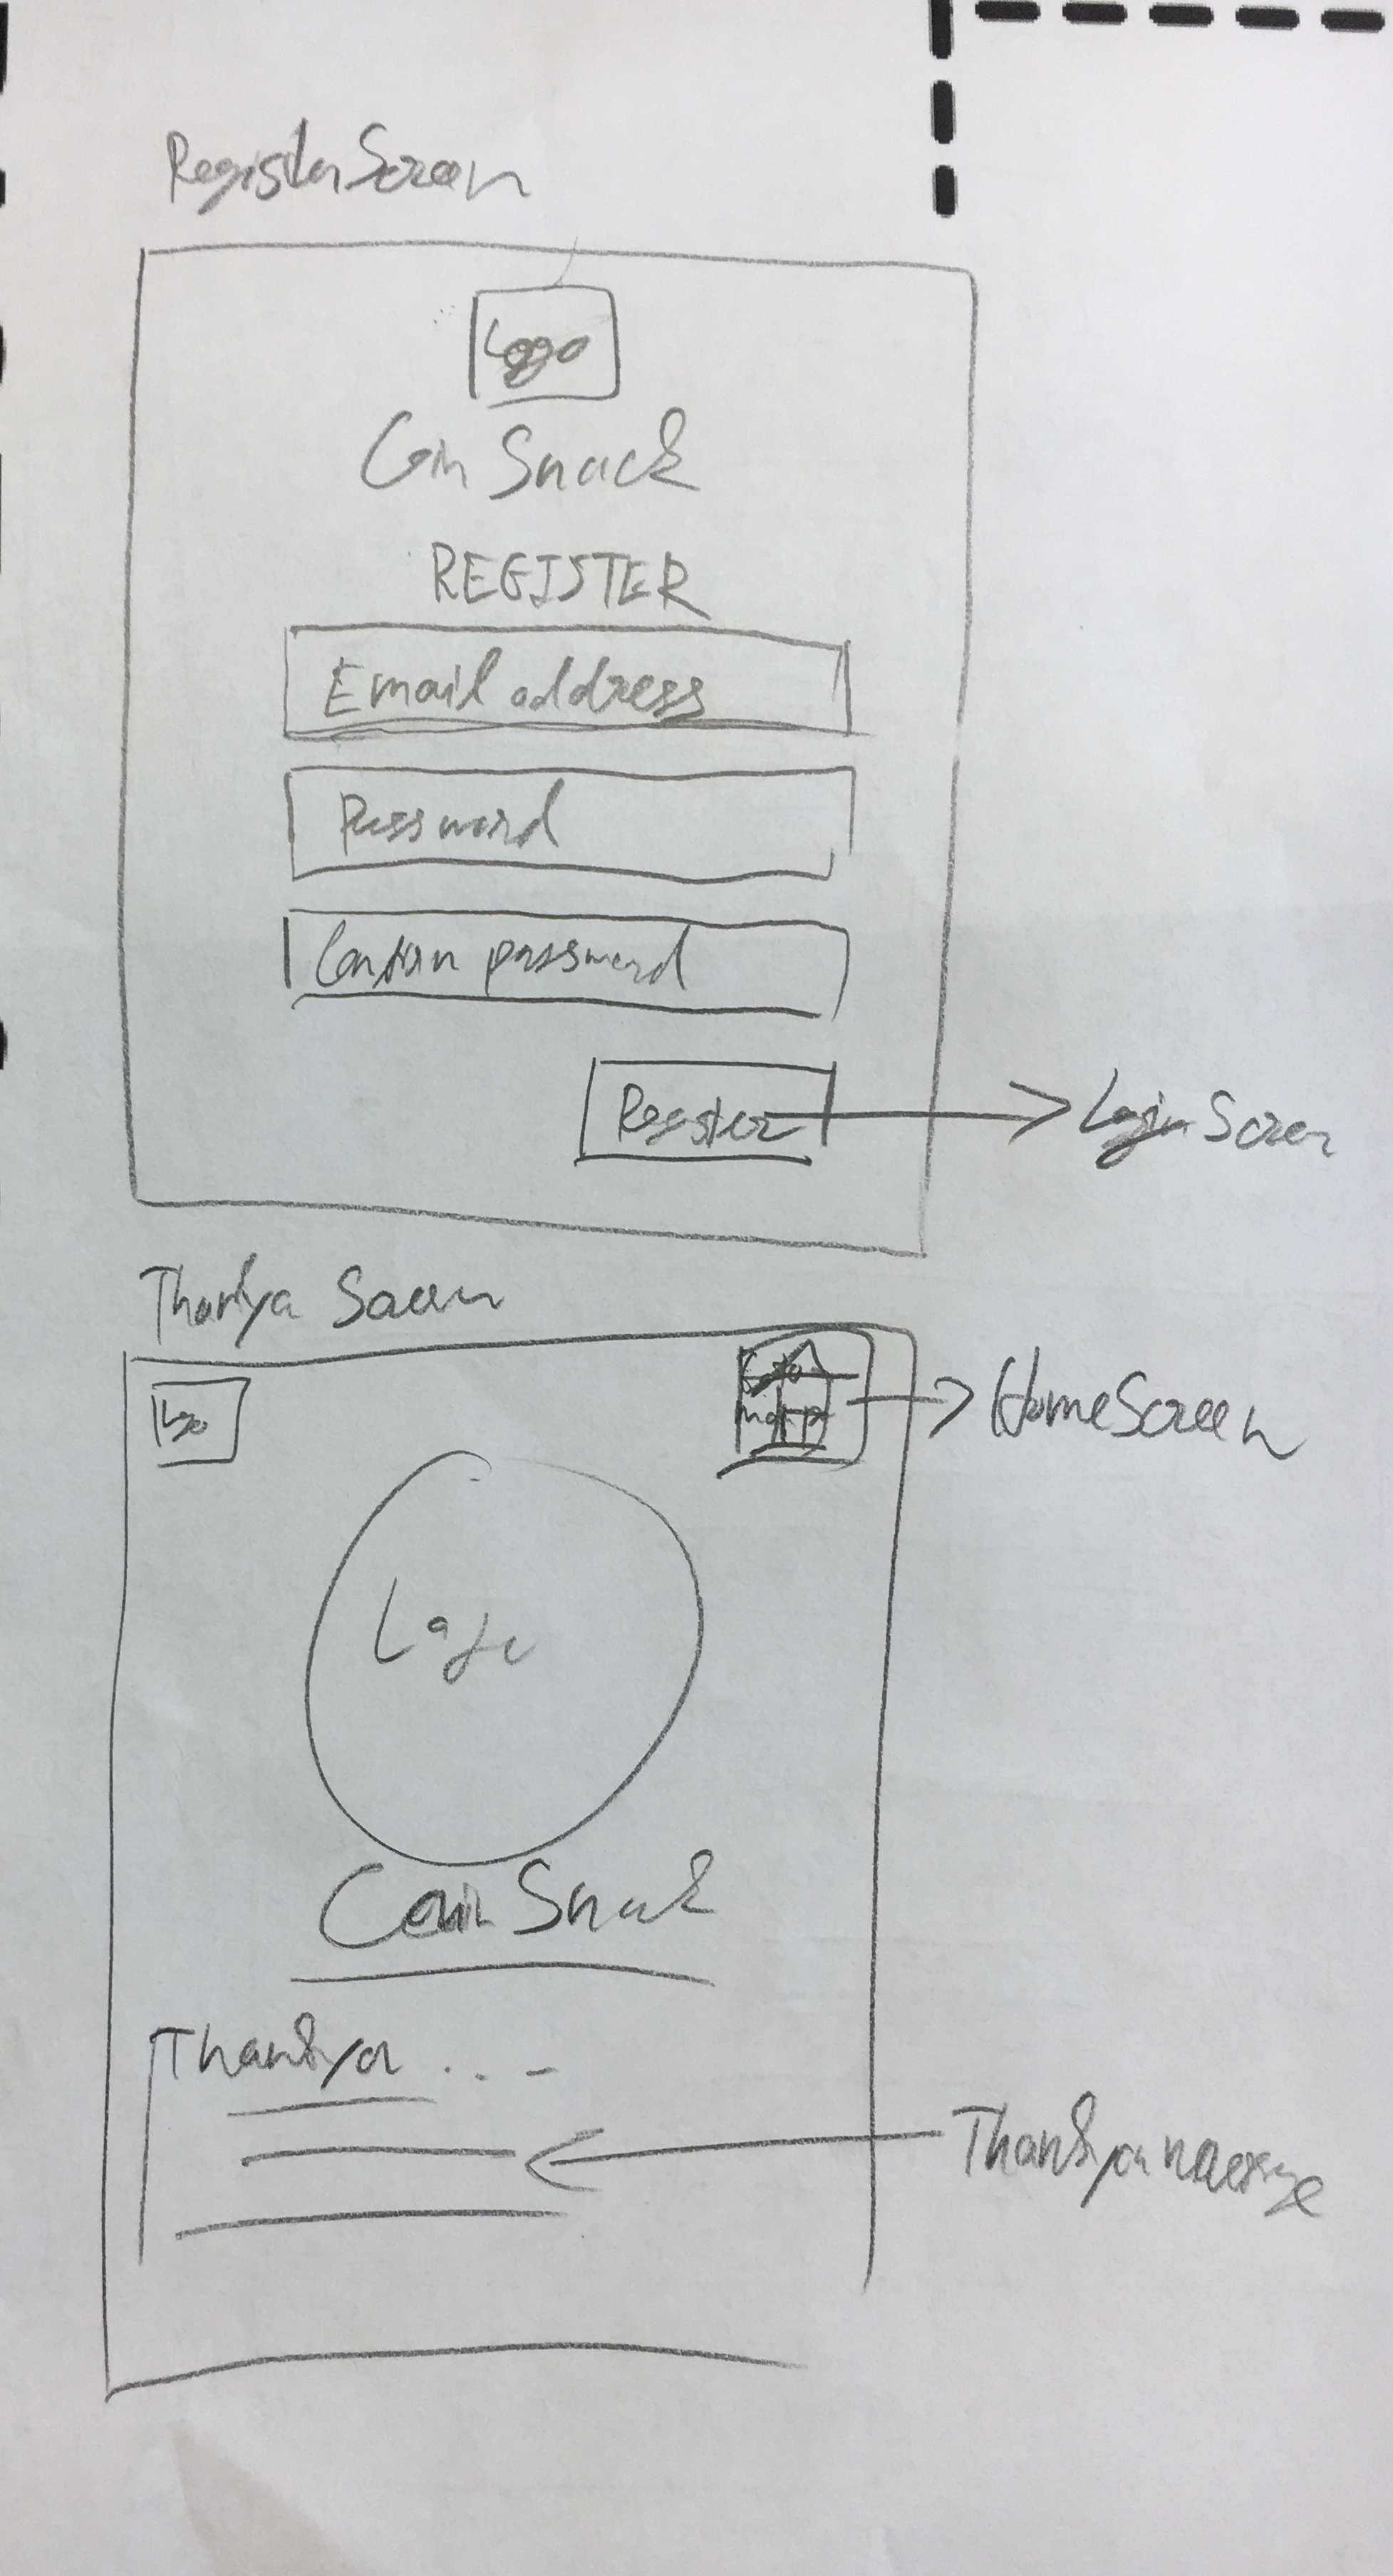 Register Screen
Logo
Coin Snack
REGISTER
Email address
Password
Confirm password
Register
Login Screen
Thankyou Screen
Logo
HomeScreen
Logo
Coin Snack
Thankyou ...
Thankyou message